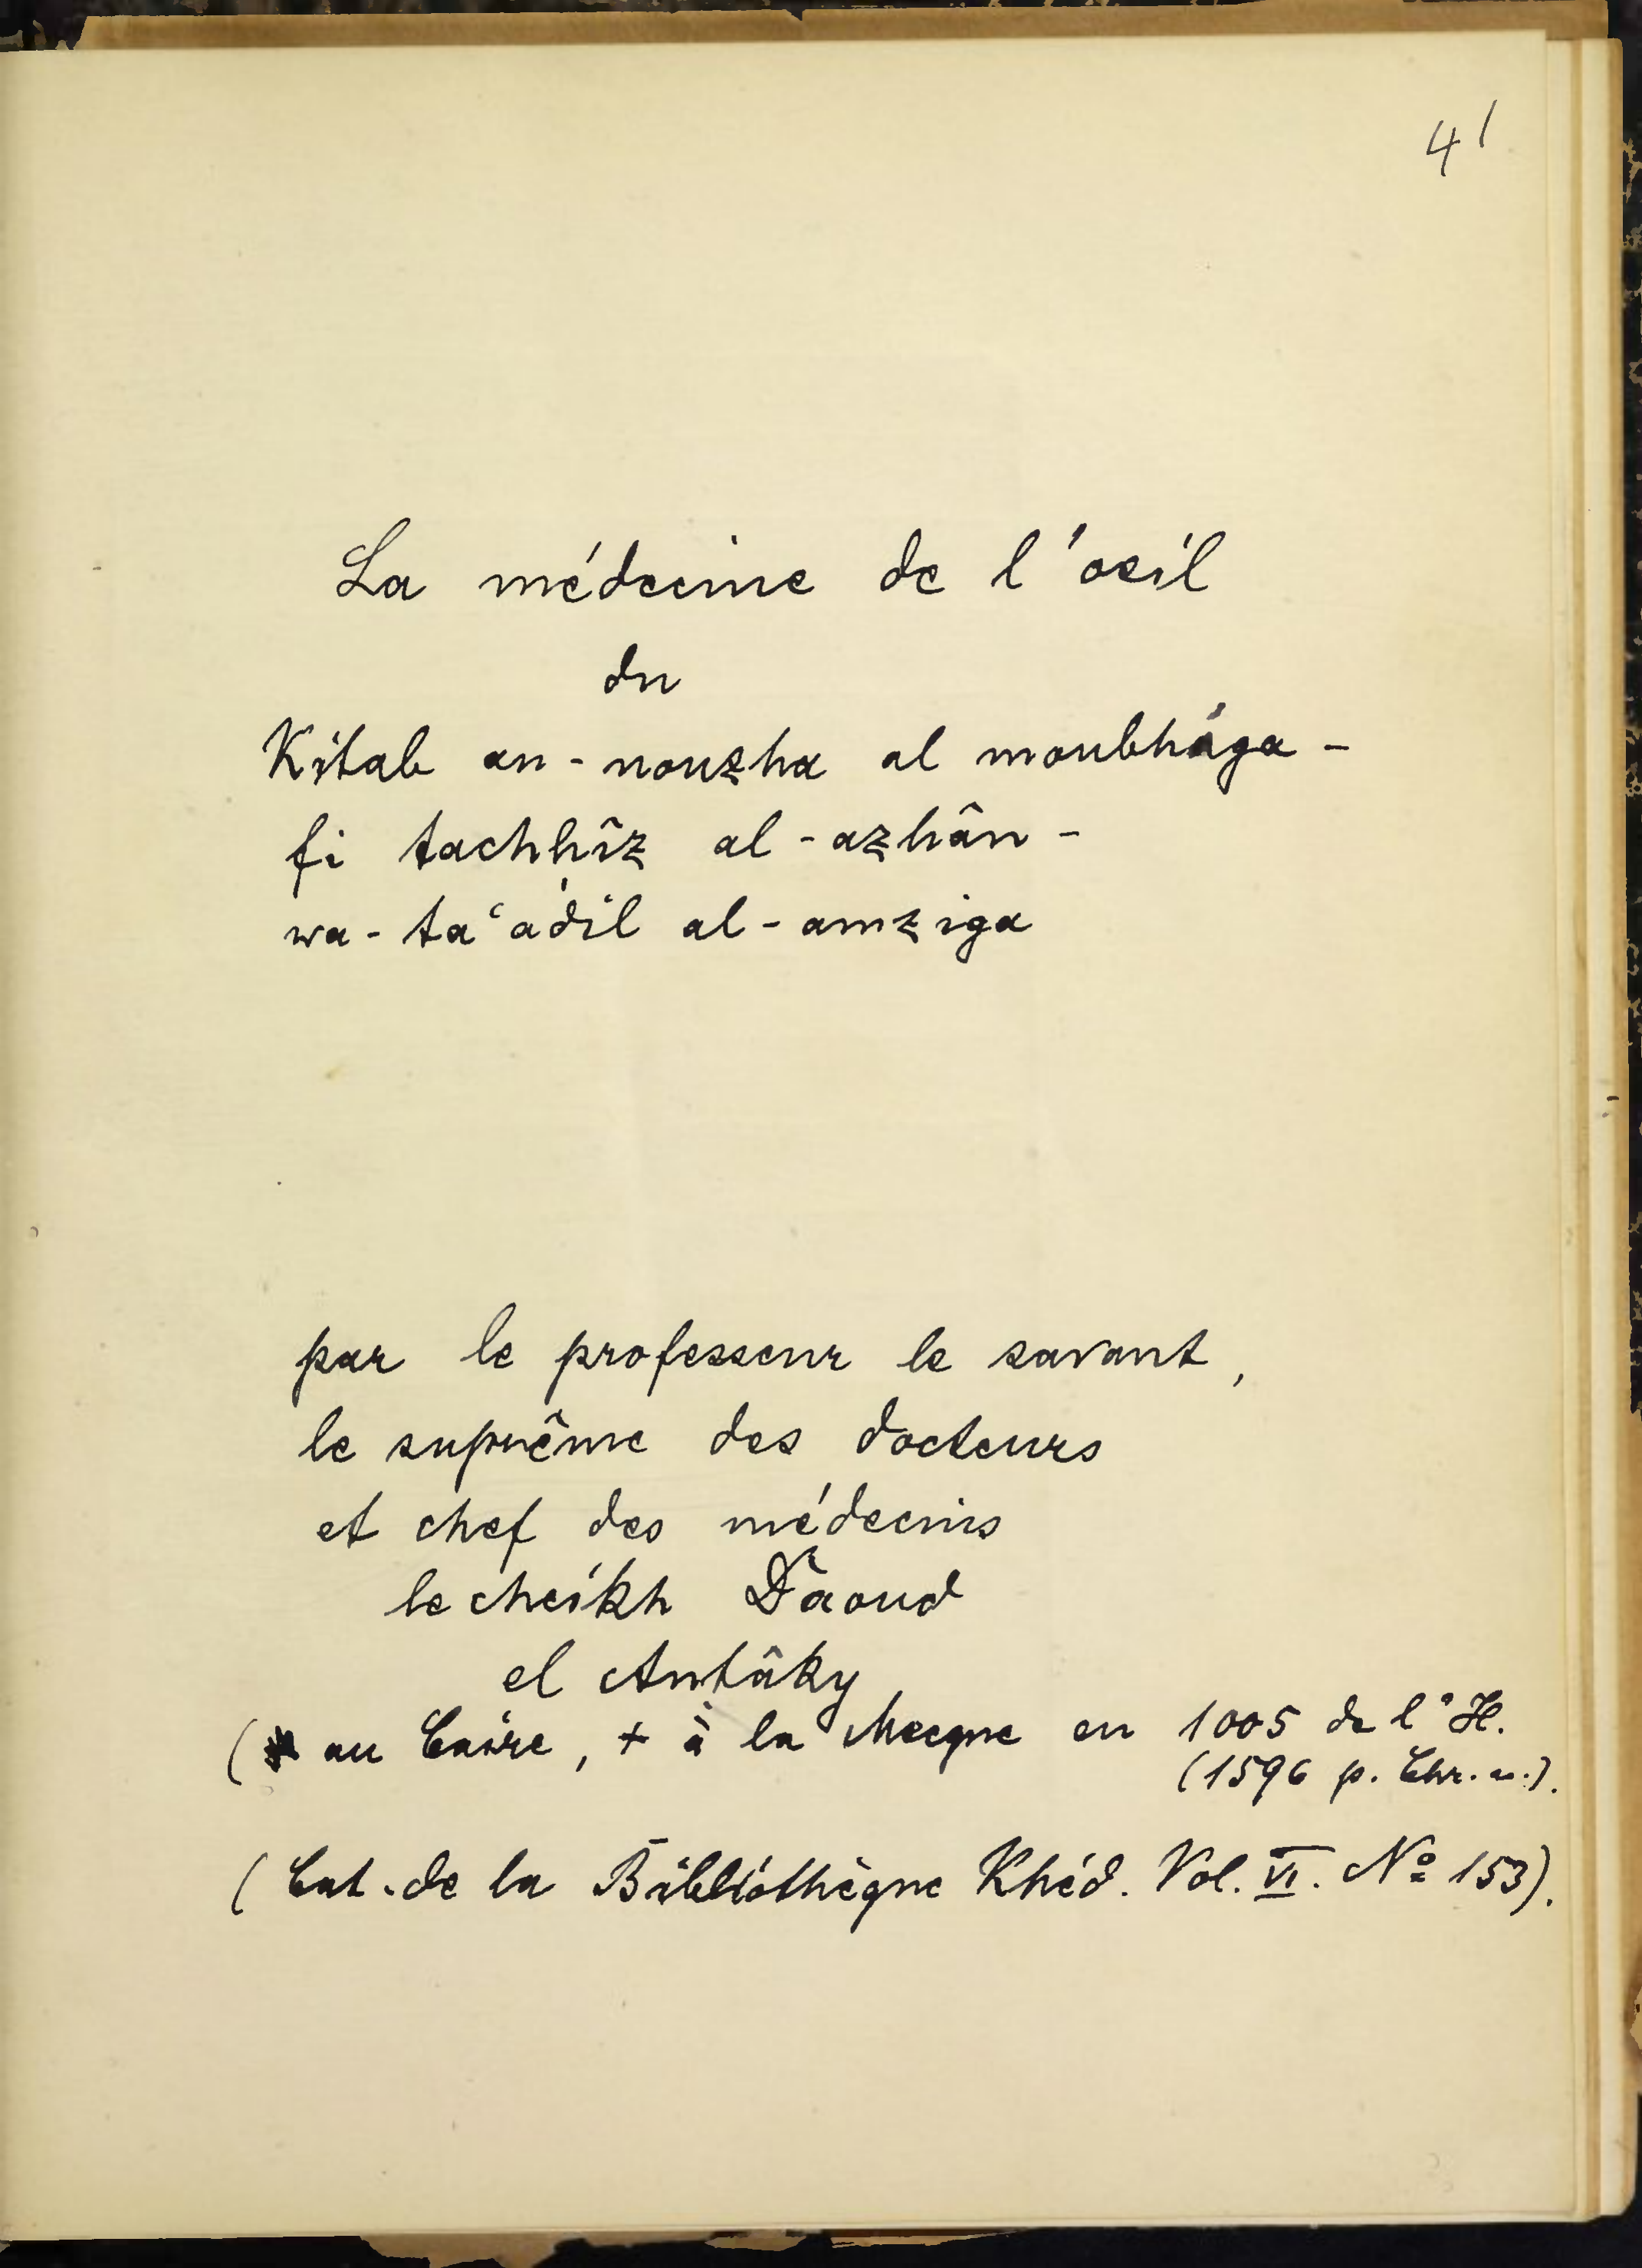 41
La médecine de l'oeil
du
Kitab an-nouzha al moubhága-
fi tachhîz al-azhân-
wa-ta'adîl al-amziga
par le professeur le savant,
le suprême des docteurs
et chef des médecins
le cheikh Dâoud
el Antâky
(* au Caire, + à la Mecque en 1005 de l'H.
(1596 p. Chr. n.).
(Cat. de la Bibliothèque Khéd. Vol. VI. Nº 153).